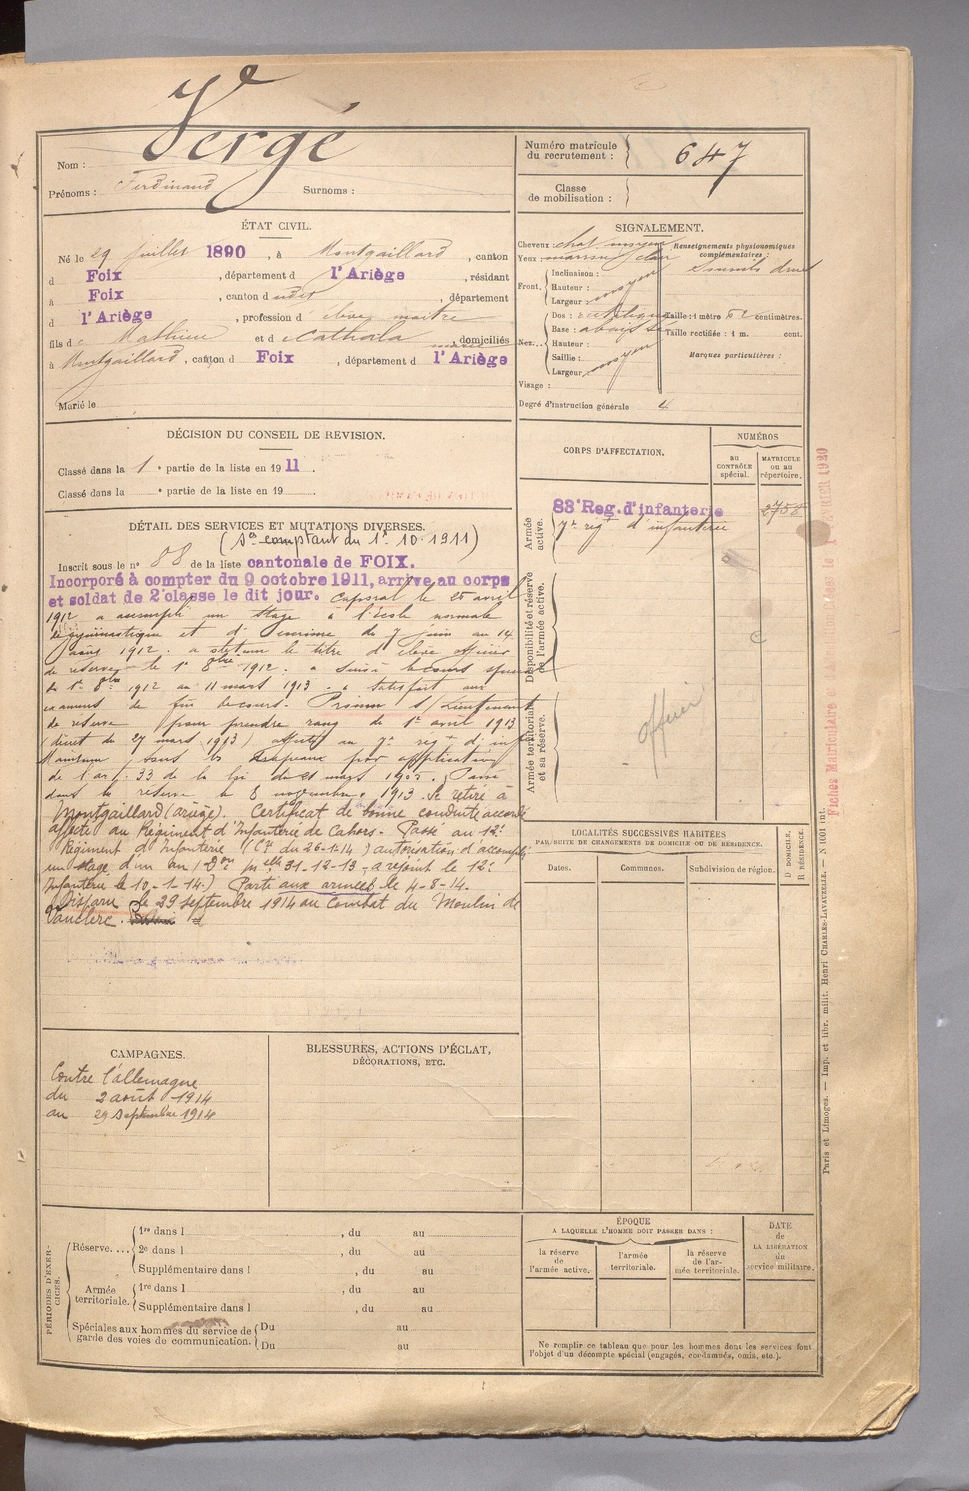 Vergé
Nom :
Prénoms : Ferdinand Surnoms :
Numéro matricule du recrutement : 647
Classe de mobilisation :
ÉTAT CIVIL.
Né le 29 juillet 1890, à Montgaillard, canton
d Foix, département d l'Ariège, résidant
à Foix, canton d udit, département
d l'Ariège, profession d élève maître
fils de Mathieu et d Cathala Marie, domiciliés
à Montgaillard, canton d Foix, département d l'Ariège
Marié le
SIGNALEMENT.
Cheveux chat. moyen
Yeux : marron clair
Front. Inclinaison :
Hauteur :
Largeur : moyen
Nez... Dos : rectiligne
Base : abaissé
Hauteur :
Saillie :
Largeur : moyen
Visage :
Renseignements physionomiques complémentaires :
Sourcils drus
Taille : 1 mètre centimètres.
Taille rectifiée : 1 m. cent.
Marques particulières :
Degré d'instruction générale 4
DÉCISION DU CONSEIL DE REVISION.
Classé dans la 1e partie de la liste en 1911.
Classé dans la e partie de la liste en 19
CORPS D'AFFECTATION.
NUMÉROS
au CONTRÔLE spécial.
MATRICULE ou au répertoire.
Armée active.
83e Reg. d'infanterie
7e regt d'infanterie
Disponibilité et réserve de l'armée active.
Armée territoriale et sa réserve.
officier
DÉTAIL DES SERVICES ET MUTATIONS DIVERSES.
(Sce comptant du 1er 10. 1911)
Inscrit sous le n° 88 de la liste cantonale de FOIX.
Incorporé à compter du 9 octobre 1911, arrivé au corps
et soldat de 2e classe le dit jour. Caporal le 25 avril
1912 a accompli un stage à l'école normale
de gymnastique et d'Escrime du 7 juin au 14
août 1912. a obtenu le titre d'élève officier
de réserve le 1er 8bre 1912. a suivi le cours spécial
du 1er 8bre 1912 au 11 mars 1913. a satisfait aux
examens de fin de cours. Promu S/Lieutenant
de réserve pour prendre rang du 1er avril 1913
(décret du 27 mars 1913) affecté au 7e regt d'infie
Maintenu sous les drapeaux par application
de l'art. 33 de la loi du 21 mars 1905. Passé
dans la réserve le 8 novembre 1913. Se retire à
Montgaillard (ariège). Certificat de bonne conduite accordé
affecté au Régiment d'Infanterie de Cahors. Passé au 12e
Régiment d'Infanterie (Cre du 26-1-14) autorisation d'accomplir
un stage d'un an (Don mlle 31-12-13, a rejoint le 12e
Infanterie le 10-1-14.) Parti aux armées le 4-8-14.
Disparu le 29 Septembre 1914 au combat du Moulin de
Vauclerc.
LOCALITÉS SUCCESSIVES HABITÉES
PAR SUITE DE CHANGEMENTS DE DOMICILE OU DE RÉSIDENCE.
Dates. Communes. Subdivision de région.
D DOMICILE.
R RÉSIDENCE.
CAMPAGNES.
Contre l'allemagne
du 2 août 1914
au 29 septembre 1914
BLESSURES, ACTIONS D'ÉCLAT,
DÉCORATIONS, ETC.
PÉRIODES D'EXERCICES.
Réserve.... 1re dans l , du au
2e dans l , du au
Supplémentaire dans l , du au
Armée territoriale. 1re dans l , du au
Supplémentaire dans l , du au
Spéciales aux hommes du service de garde des voies de communication. Du au
Du au
ÉPOQUE
A LAQUELLE L'HOMME DOIT PASSER DANS :
la réserve de l'armée active.
l'armée territoriale.
la réserve de l'armée territoriale.
DATE de LA LIBÉRATION du service militaire.
Ne remplir ce tableau que pour les hommes dont les services font
l'objet d'un décompte spécial (engagés, condamnés, omis, etc.).
Paris et Limoges. — Imp. et libr. milit. Henri CHARLES-LAVAUZELLE. — N 1001 int.